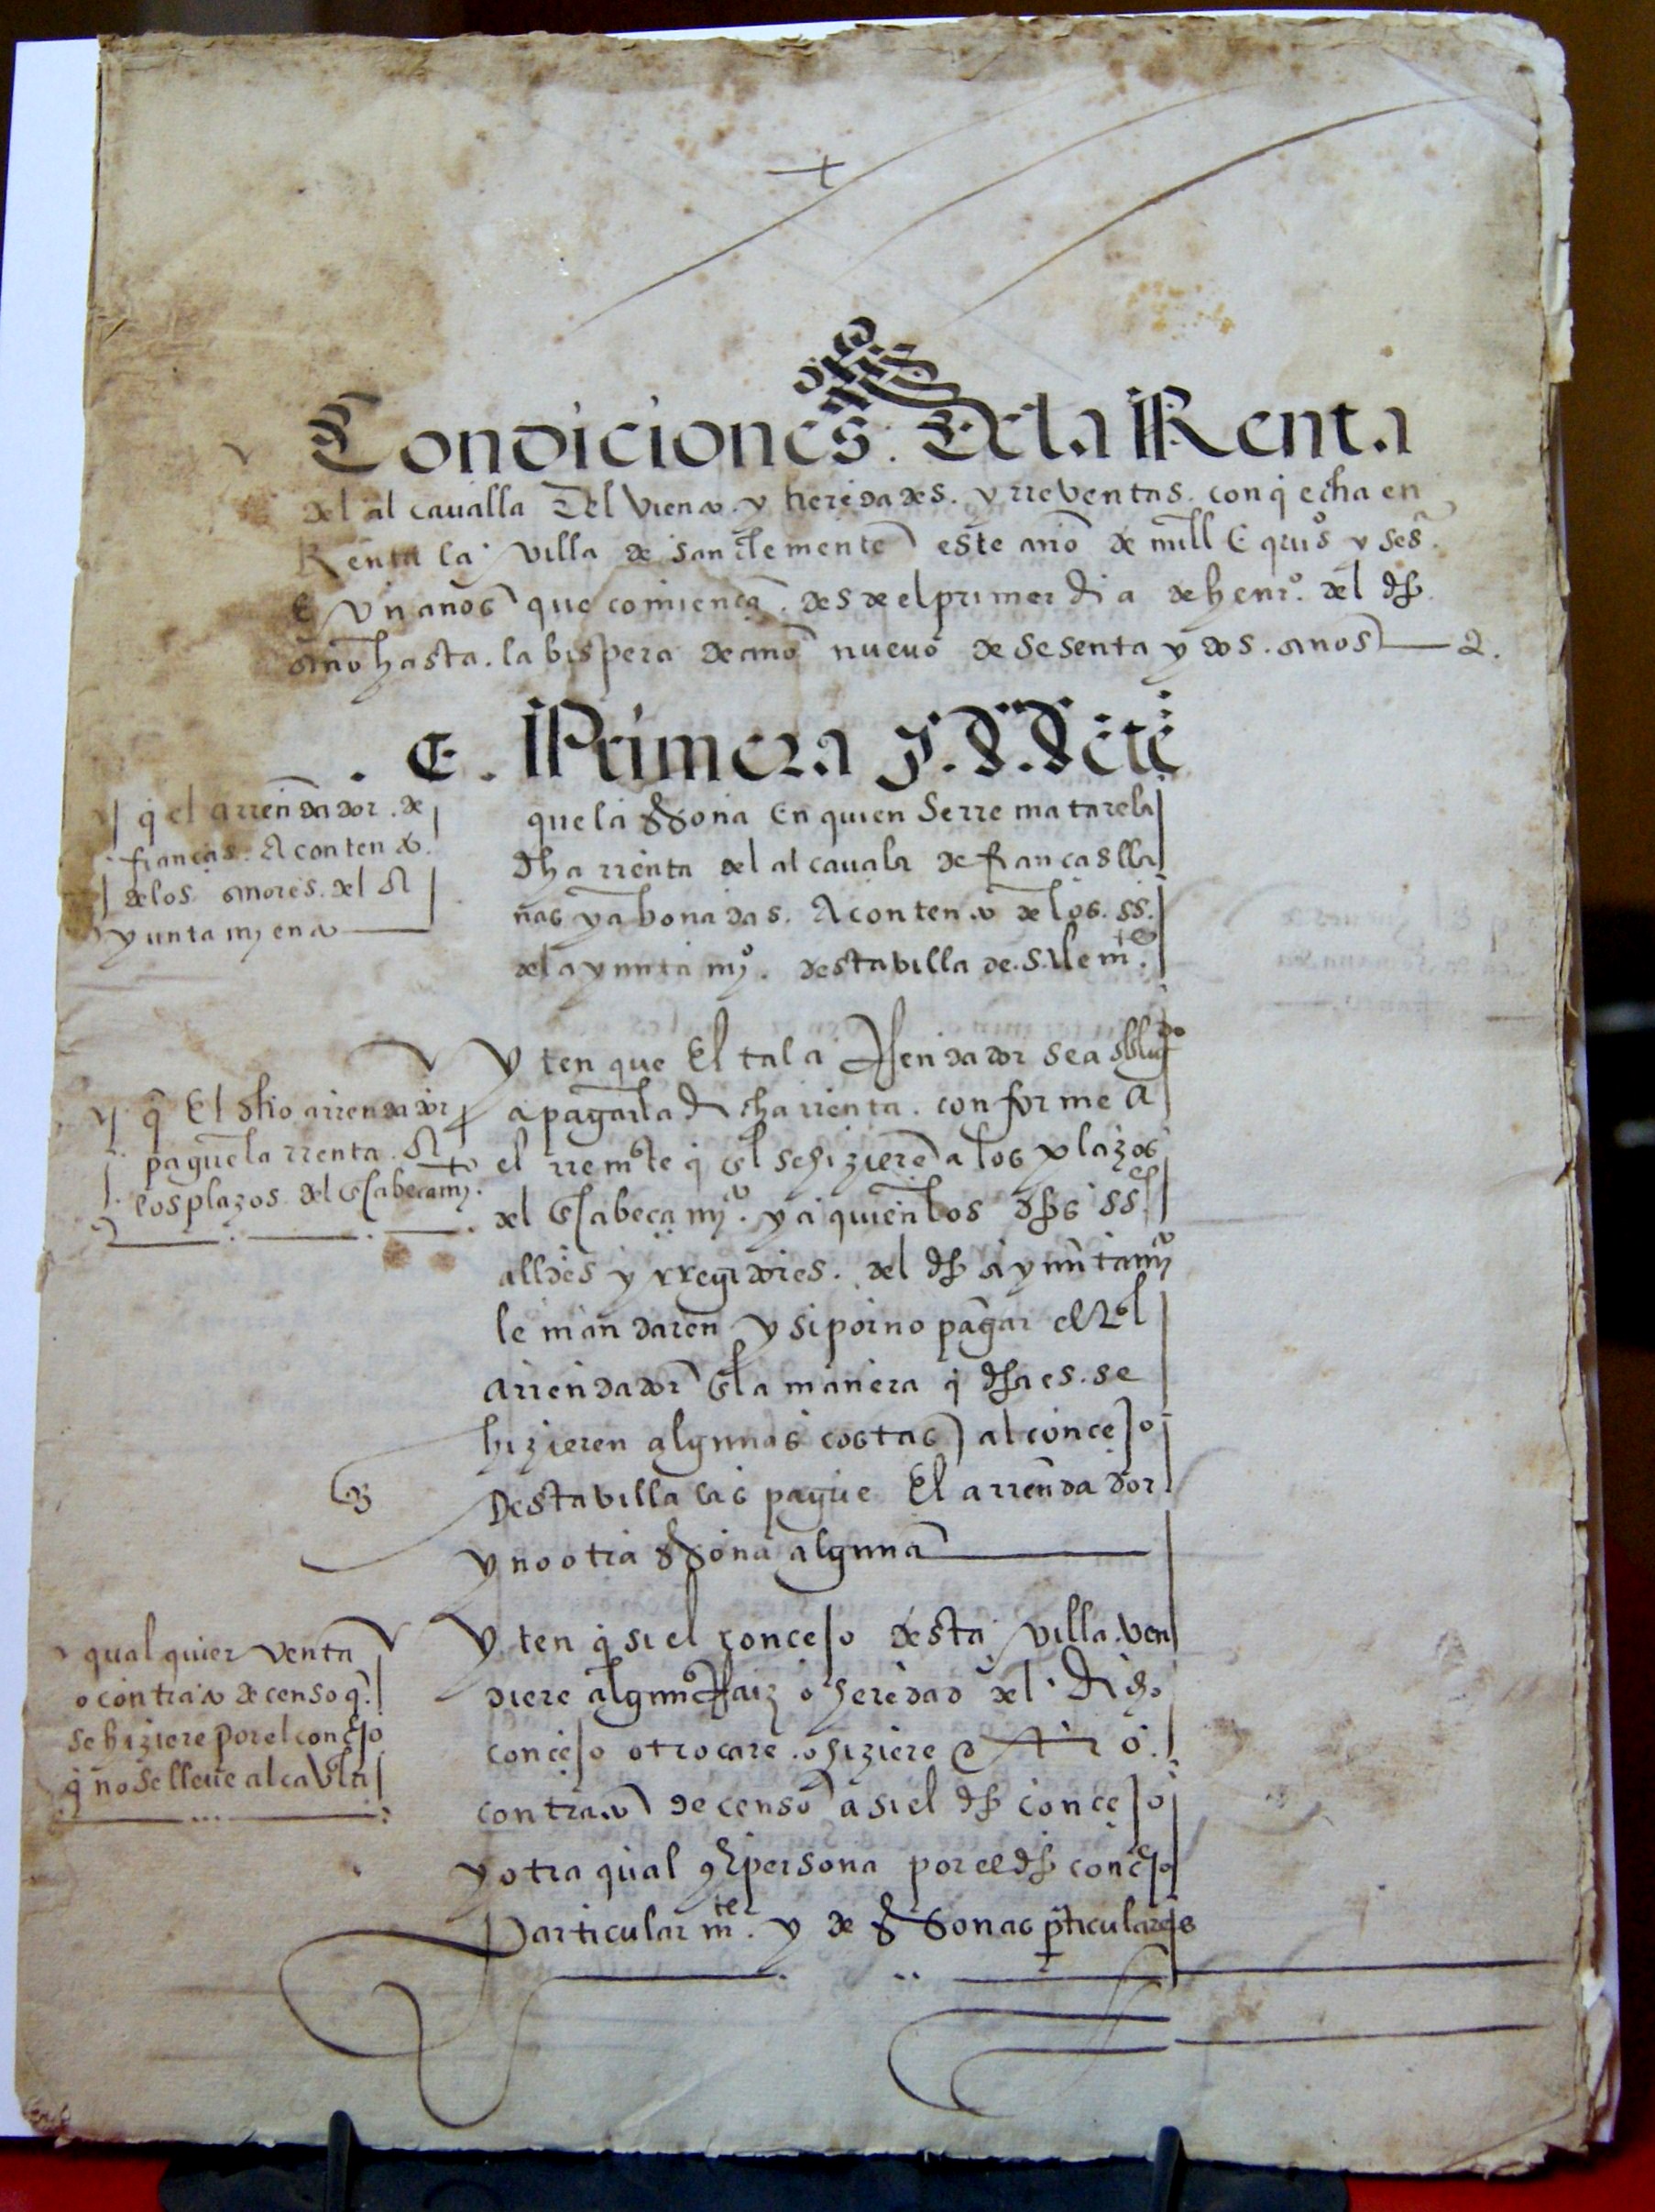 +
Condiciones. De la Renta
del alcaualla Del viento. y heredades. y rreventas. con q̄ echa en
Renta la villa de san clemente este año de mill e quis y ses.
E vn anos que comiença. desde el primer dia de henro. del dho
año hasta. la bispera de año nuevo de sesenta y dos. años
. E. Primera
y q̄ el arrendador. de
fianças. A contento.
de los señores. del A
yuntamiento
que la persona En quien Se rrematare la
dha rrenta del alcauala de fianças lla
nas y abonadas. A contento de los. ss.
del ayuntamyo. desta villa de. S. clemte.
y q̄ El dho arrendador
pague la rrenta. A
los plazos del Encabeçamyto.
y ten que El tal arrendador sea obligdo
a pagar la dicha rrenta. conforme a
el rremate q̄ en el se hiziere a los plazos
del Encabeçamyo. y a quien los dhos ss.es
alldes y rregidores. del dho ayuntamyo
le mandaren y si por no pagar el tal
arrendador en la manera q̄ dha es. se
hizieren algunas costas al concejo
Desta villa las pague El arrendador
y no otra persona alguna
qualquier venta
o contrato de censo q̄.
se hiziere por el concejo
q̄ no se lleue alcavala
y ten q̄ si el concejo desta villa. ven
diere algun rraiz o heredad del. dicho
concejo o trocare. o hiziere otro.
contrato de censo a si el dho concejo
y otra qualqr persona por el dho concejo
Particularmte. y de personas particulares